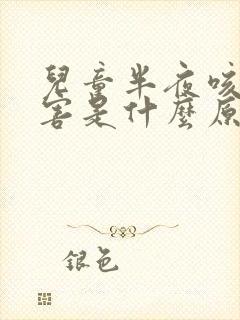 兒童半夜咳
害是什麼原
銀色